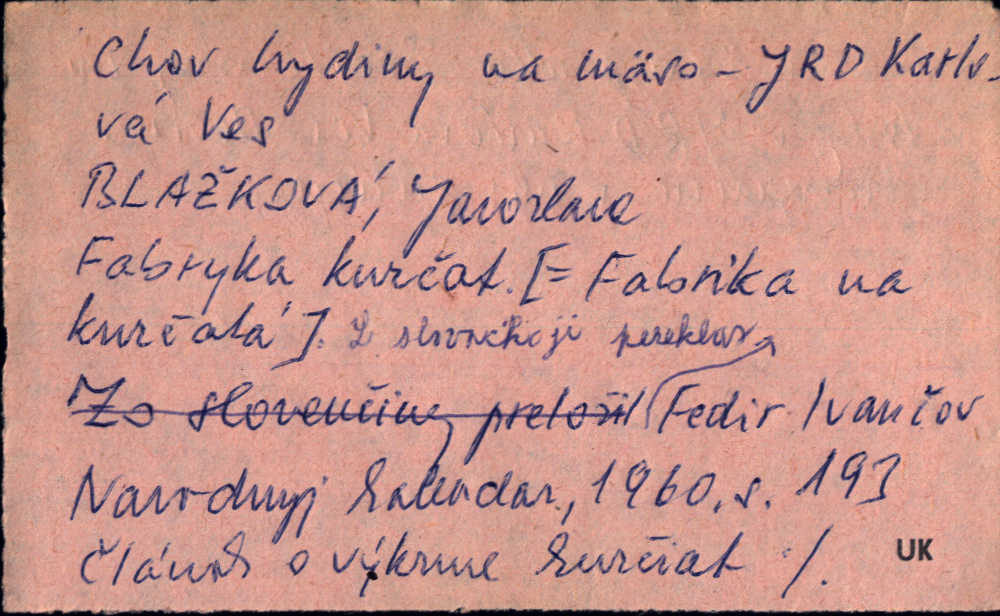 Chov hydiny na mäso - JRD Karlo-
vá Ves
BLAŽKOVÁ, Jaroslava
Fabryka kurčat. [= Fabrika na
kurčatá]. Z slovac'koji pereklav
Zo slovenčiny preložil Fedir Ivančov
Narodnyj kalendar, 1960, s. 193
Článok o výkrme kurčiat /.
UK